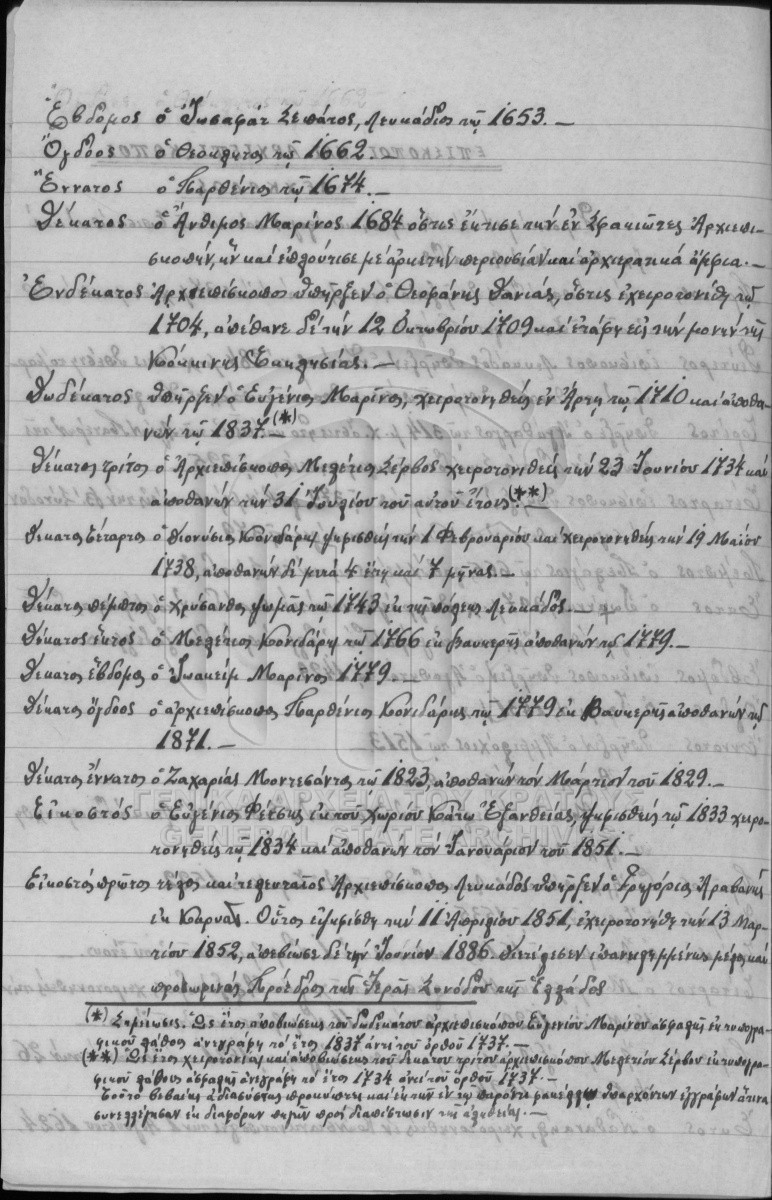 Ἕβδομος ὁ Ἰωσαφὰτ Σεπάτος, Λευκάδιος τῷ 1653.—
Ὄγδοος ὁ Θεόκλητος τῷ 1662.—
Ἔννατος ὁ Παρθένιος τῷ 1674.—
Δέκατος ὁ Ἄνθιμος Μαρίνος 1684 ὅστις ἔκτισε τὴν ἐν Σφακιῶτες Ἀρχιεπι-
σκοπήν, ἥν καὶ ἐπλούτισε μὲ ἀρκετὴν περιουσίαν καὶ ἀρχιερατικά ἄμφια.—
Ἑνδέκατος Ἀρχιεπίσκοπος ὑπῆρξεν ὁ Θεοφάνης Δανιάς, ὅστις ἐχειροτονήθη τῷ
1704, ἀπέθανε δὲ τὴν 12 Ὀκτωβρίου 1709 καὶ ἐτάφη εἰς τὴν μονὴν τῆς
Κόκκινης Ἐκκλησίας.—
Δωδέκατος ὑπῆρξεν ὁ Εὐγένιος Μαρῖνος, χειροτονηθεὶς ἐν Ἄρτῃ τῷ 1710 καὶ ἀποθα-
νών τῷ 1837.(*)—
Δέκατος τρίτος ὁ Ἀρχιεπίσκοπος Μελέτιος Σέρβος χειροτονιθεὶς τὴν 23 Ἰουνίου 1734 καὶ
ἀποθανών τὴν 31 Ἰουλίου τοῦ αὐτοῦ ἔτους.(**)—
Δέκατος τέταρτος ὁ Διονύσιος Κονιδάρης ψηφισθεὶς τὴν 1 Φεβρουαρίου καὶ χειροτονηθεὶς τὴν 19 Μαΐου
1738, ἀποθανών δὲ μετὰ 4 ἔτη καὶ 7 μῆνας.—
Δέκατος πέμπτος ὁ Χρύσανθος Ψωμᾶς τῷ 1743 ἐκ τῆς πόλεως Λευκάδος.—
Δέκατος ἕκτος ὁ Μελέτιος Κονιδάρης τῷ 1766 ἐκ Βαυκερῆς ἀποθανών τῷ 1779.—
Δέκατος ἕβδομος ὁ Ἰωακείμ Μαρῖνος 1779.—
Δέκατος ὄγδοος ὁ ἀρχιεπίσκοπος Παρθένιος Κονιδάρης τῷ 1779 ἐκ Βαυκερῆς ἀποθανών τῷ
1871.—
Δέκατος ἔννατος ὁ Ζαχαρίας Μοντεσάντος τῷ 1823, ἀποθανών τὸν Μάρτιον τοῦ 1829.—
Εἰκοστός ὁ Εὐγένιος Φέτσης ἐκ τοῦ χωρίου Κάτω Ἐξανθείας, ψηφισθεὶς τῷ 1833 χειρο-
τονηθεὶς τῷ 1834 καὶ ἀποθανών τὸν Ἰανουάριον τοῦ 1851.—
Εἰκοστὸς πρῶτος τέλος καὶ τελευταῖος Ἀρχιεπίσκοπος Λευκάδος ὑπῆρξεν ὁ Γρηγόριος Ἀραβανῆς
ἐκ Καρυᾶς. Οὗτος ἐψηφίσθη τὴν 11 Ἀπριλίου 1851, ἐχειροτονήθη τὴν 13 Μαρ-
τίου 1852, ἀπεβίωσε δὲ τὴν Ἰουνίου 1886. Διετέλεσεν ἐπανειλημμένως μέλος καὶ
προσωρινὸς Πρόεδρος τῆς Ἱερᾶς Συνόδου τῆς Ἑλλάδος
(*) Σημείωσις. Ὡς ἔτος ἀποβιώσεως τοῦ δωδεκάτου ἀρχιεπισκόπου Εὐγενίου Μαρίνου ἀσφαλῶς ἐκ τυπογρα-
φικοῦ λάθους ἀνεγράφη τὸ ἔτος 1837 ἀντὶ τοῦ ὀρθοῦ 1737.—
(**) Ὡς ἔτος χειροτονίας καὶ ἀποβιώσεως τοῦ δεκάτου τρίτου ἀρχιεπισκόπου Μελετίου Σέρβου ἐκ τυπογρα-
φικοῦ λάθους ἀσφαλῶς ἀνεγράφη τὸ ἔτος 1734 ἀντὶ τοῦ ὀρθοῦ 1737.—
Τοῦτο βεβαίως ἀδιασείστως προκύπτει καὶ ἐκ τῶν ἐν τῷ παρόντι φακέλλῳ ὑπαρχόντων ἐγγράφων ἅτινα
συνελλέγησαν ἐκ διαφόρων πηγῶν πρὸς διαπίστωσιν τῆς ἀληθείας.—
ΓΕΝΙΚΑ ΑΡΧΕΙΑ ΤΟΥ ΚΡΑΤΟΥΣ
GENERAL STATE ARCHIVES